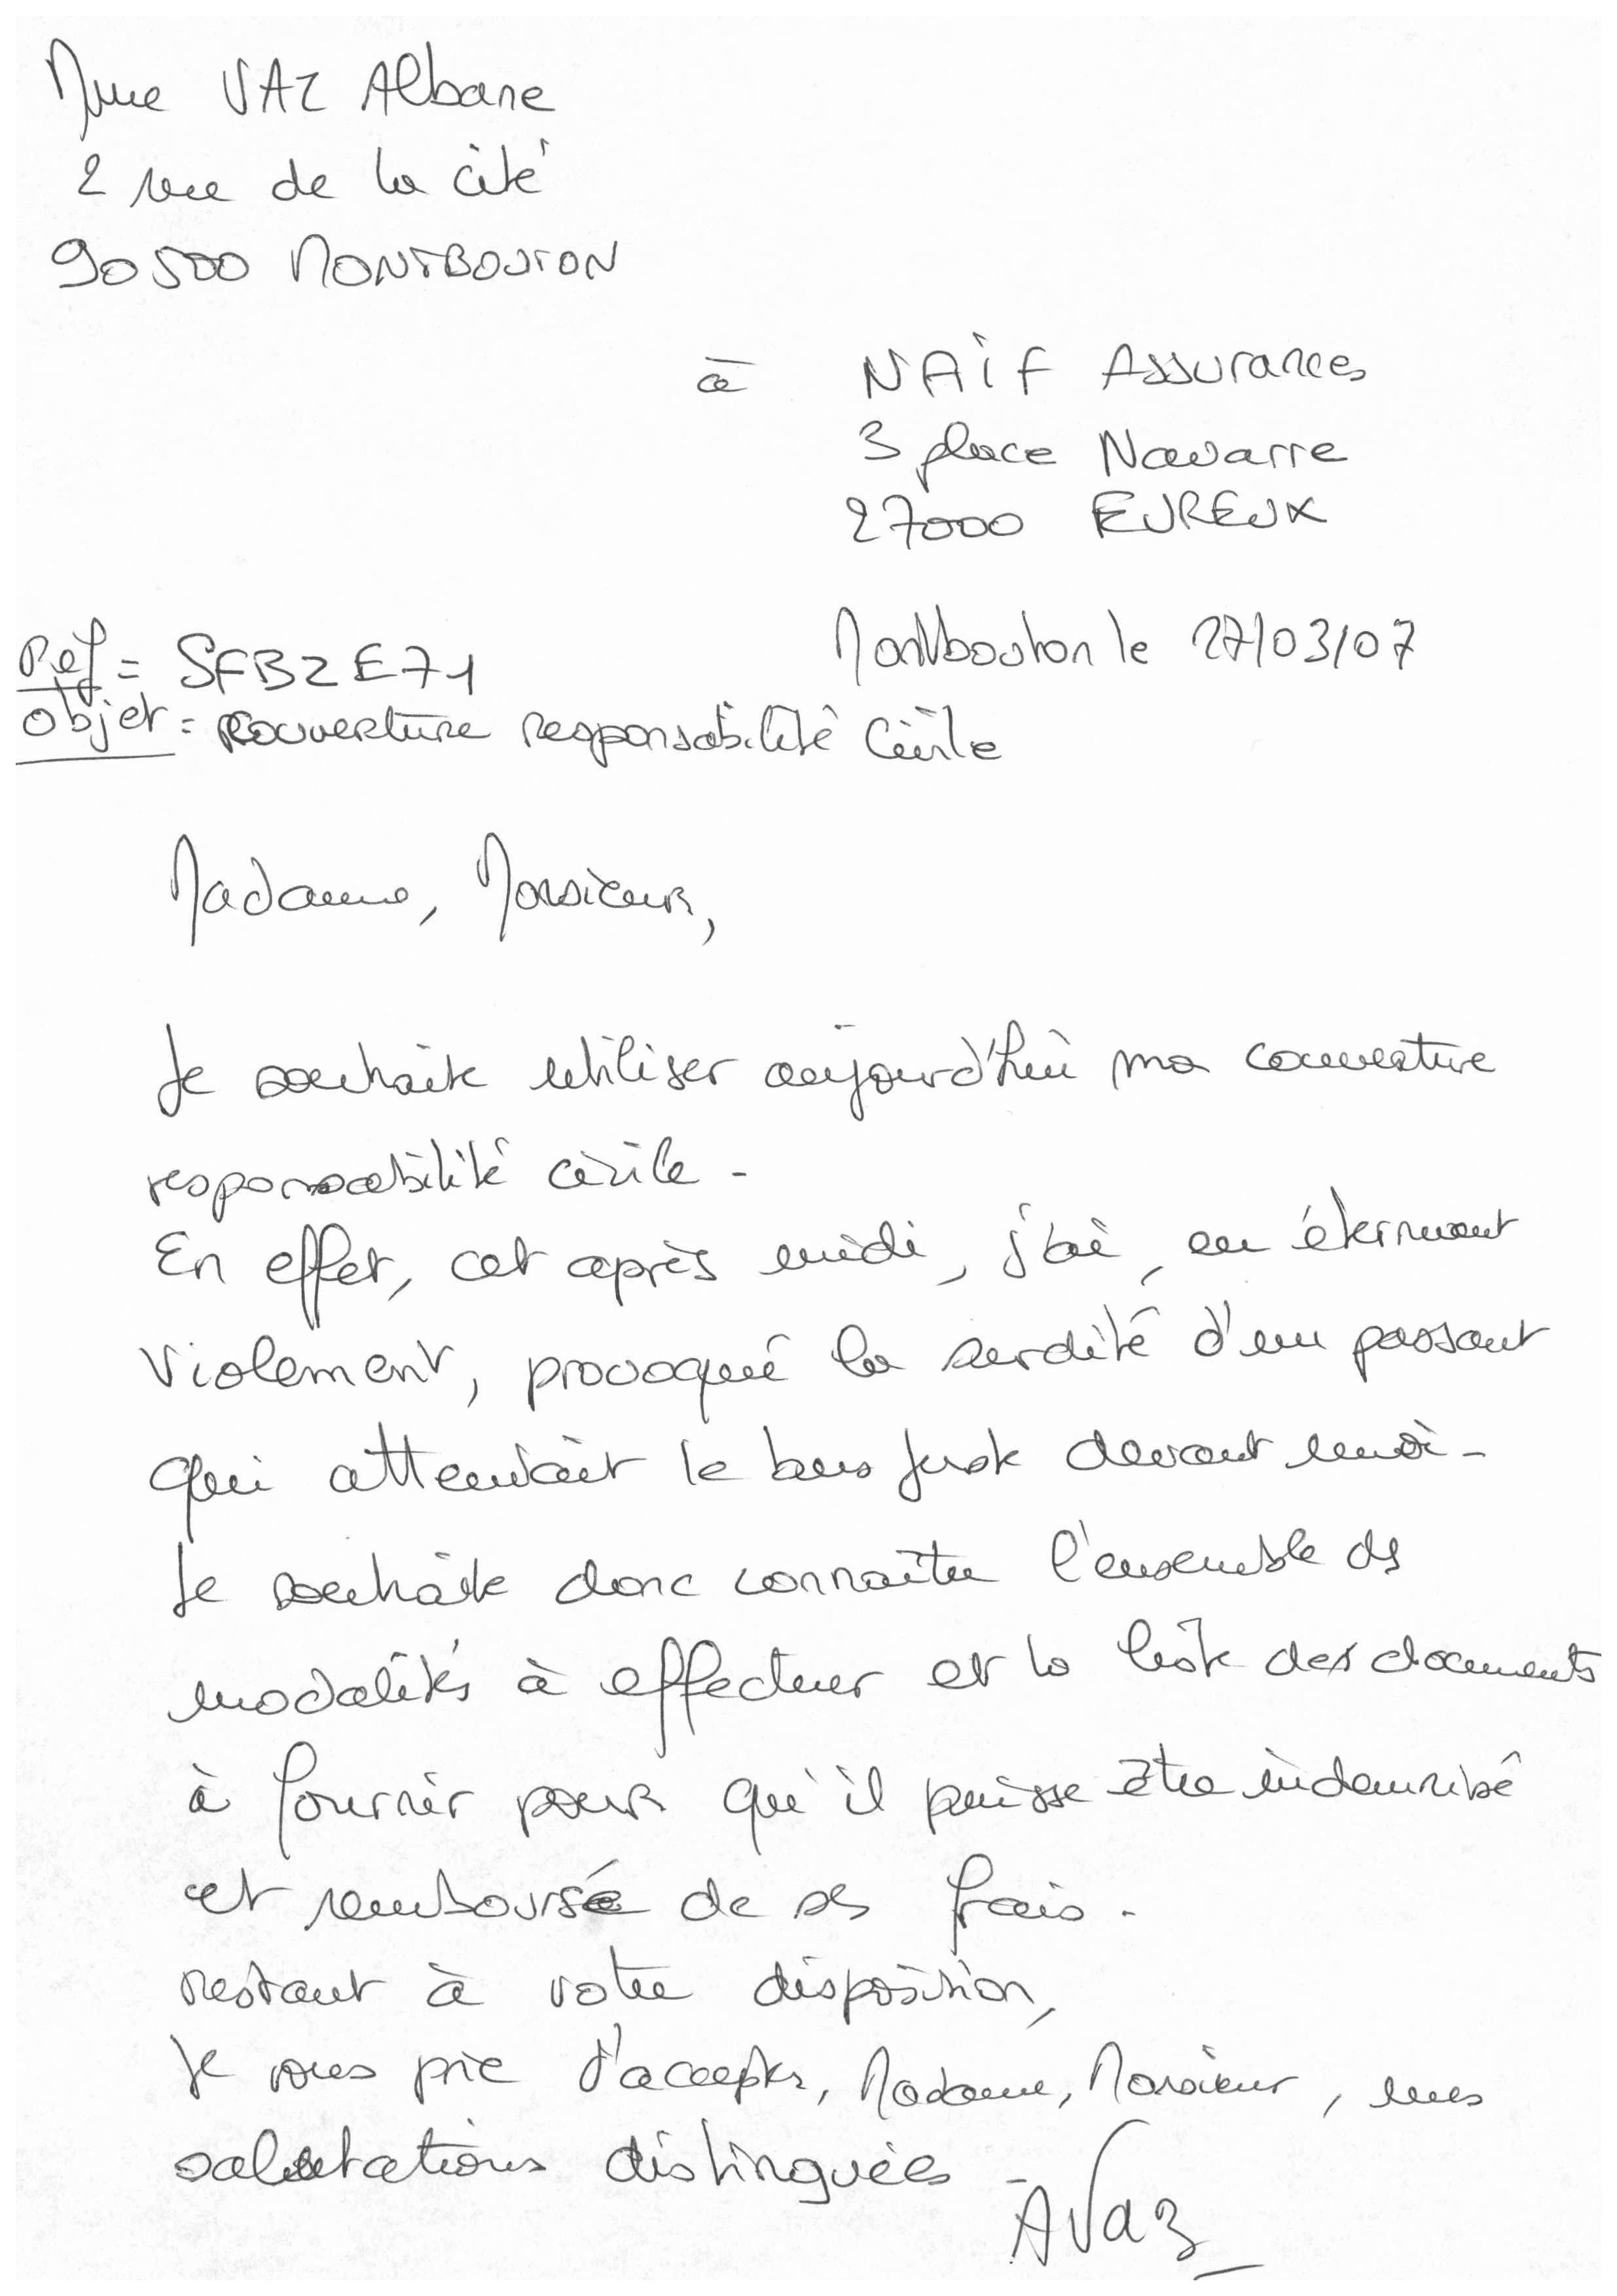 Mme VAZ Albane
2 rue de la cité
90500 MONTBOUTON
à NAIF Assurances
3 place Navarre
27000 EVREUX
Montbouton le 27/03/07
Réf = SFBZE71
Objet = couverture responsabilité civile
Madame, Monsieur,
Je souhaite utiliser aujourd'hui ma couverture
responsabilité civile.
En effet, cet après midi, j'ai, en éternuant
violement, provoqué la surdité d'un passant
qui attendait le bus juste devant moi.
Je souhaite donc connaître l'ensemble des
modalités à effectuer et la liste des documents
à fournir pour qu'il puisse être indemnisé
et remboursé de ses frais.
restant à votre disposition,
Je vous prie d'accepter, Madame, Monsieur, mes
salutations distinguées.
AVaz